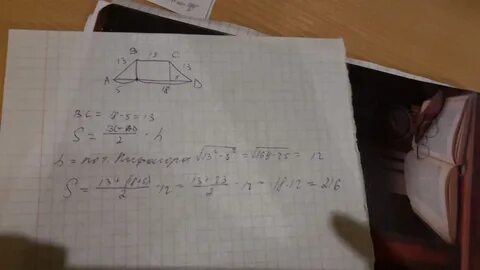 B 13 C
13 13
A D
5 18
BC = 18-5 = 13
S = BC+AD/2 · h
h = по т. Пифагора √13²-5² = √169-25 = 12
S = 13+(18+5)/2 · 12 = 13+23/2 · 12 = 18·12 = 216